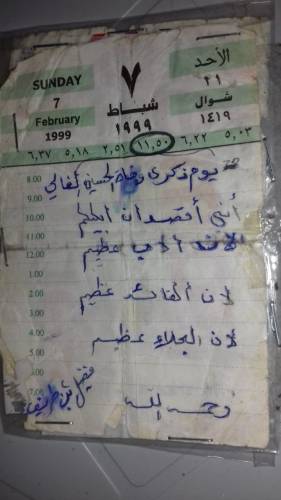 SUNDAY
7
February
1999
٧
شباط
١٩٩٩
الأحد
٢١
شوال
١٤١٩
٦,٣٧ ٥,١٨ ٢,٥١ ١١,٥٠ ٦,٢٢ ٥,٠٣
8.00
يوم ذكرى وفاة الحسين الغالي
9.00
أنني أقصد أن أبكيكم
10.00
11.00
لأن أبي عظيم
12.00
1.00
2.00
لأن القائد عظيم
3.00
4.00
لأن البلاء عظيم
5.00
6.00
رحمه الله